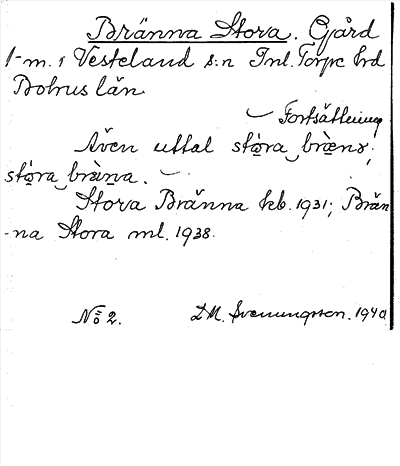 Bränna Stora. Gård
1-m. i Vesteland s:n Inl. Torpe hd
Bohus län
Fortsättning
Även uttal stó̱ra‿brä̀nə;
stó̱ra‿brä̀na.
Stora Bränna kb. 1931; Brän
-na Stora ml. 1938.
No 2. D.M. Svenungsson. 1940